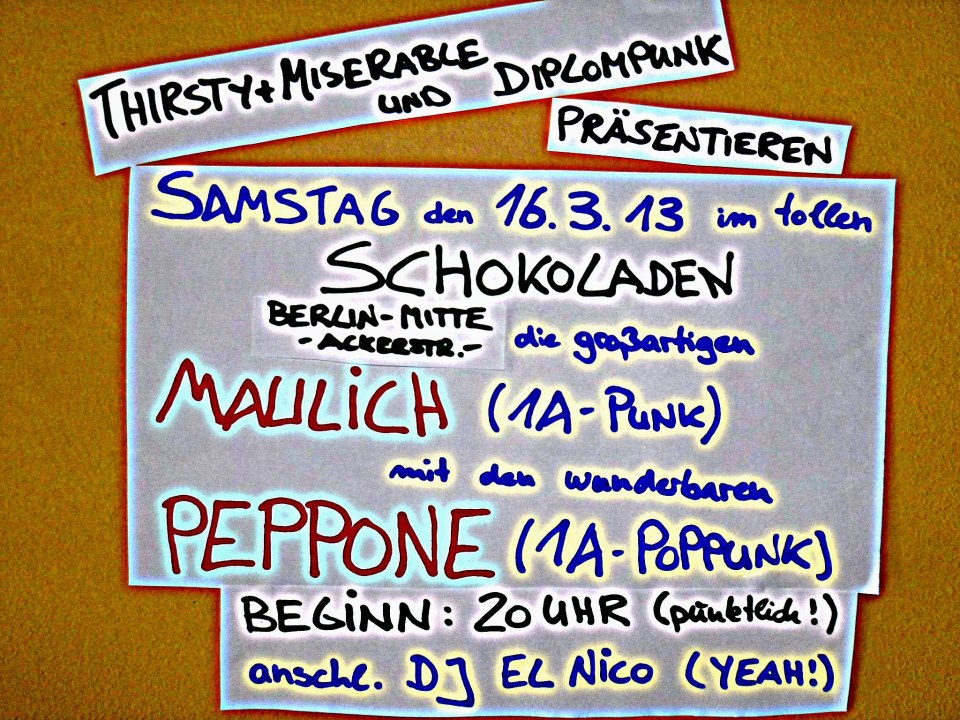 THIRSTY+MISERABLE
UND DIPLOMPUNK
PRÄSENTIEREN
SAMSTAG den 16.3.13 im tollen
SCHOKOLADEN
BERLIN-MITTE
- ACKERSTR.-
die großartigen
MAULICH (1A-PUNK)
mit den wunderbaren
PEPPONE (1A-POPPUNK)
BEGINN: 20 UHR (pünktlich!)
anschl. DJ EL NICO (YEAH!)